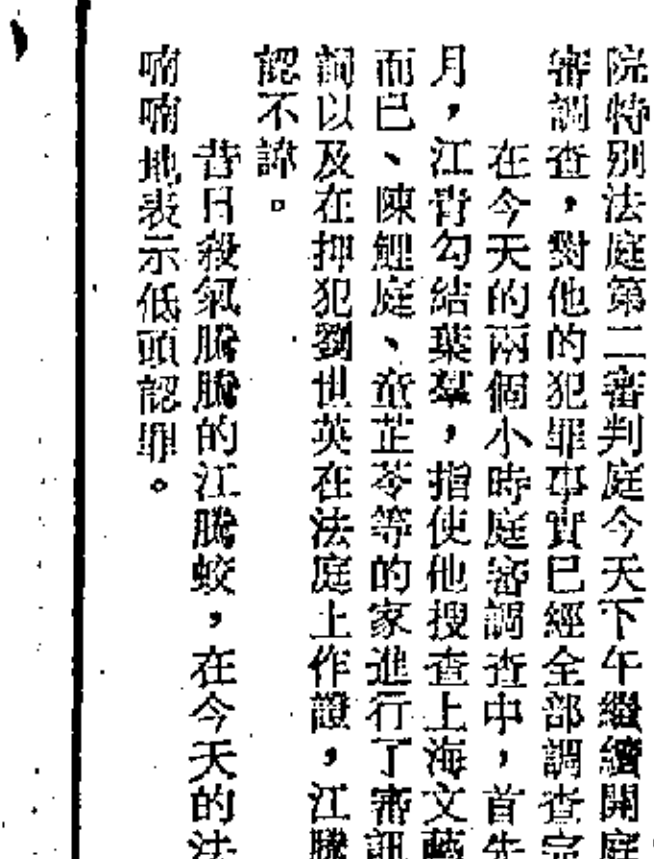 院特別法庭第二審判庭今天下午繼續開庭
審調查，對他的犯罪事實已經全部調查完
在今天的兩個小時庭審調查中，首先
月，江青勾結葉羣，指使他搜查上海文藝
而已、陳鯉庭、童芷苓等的家進行了審訊
調以及在押犯劉世英在法庭上作證，江騰
認不諱。
昔日殺氣騰騰的江騰蛟，在今天的法
喃喃地表示低頭認罪。